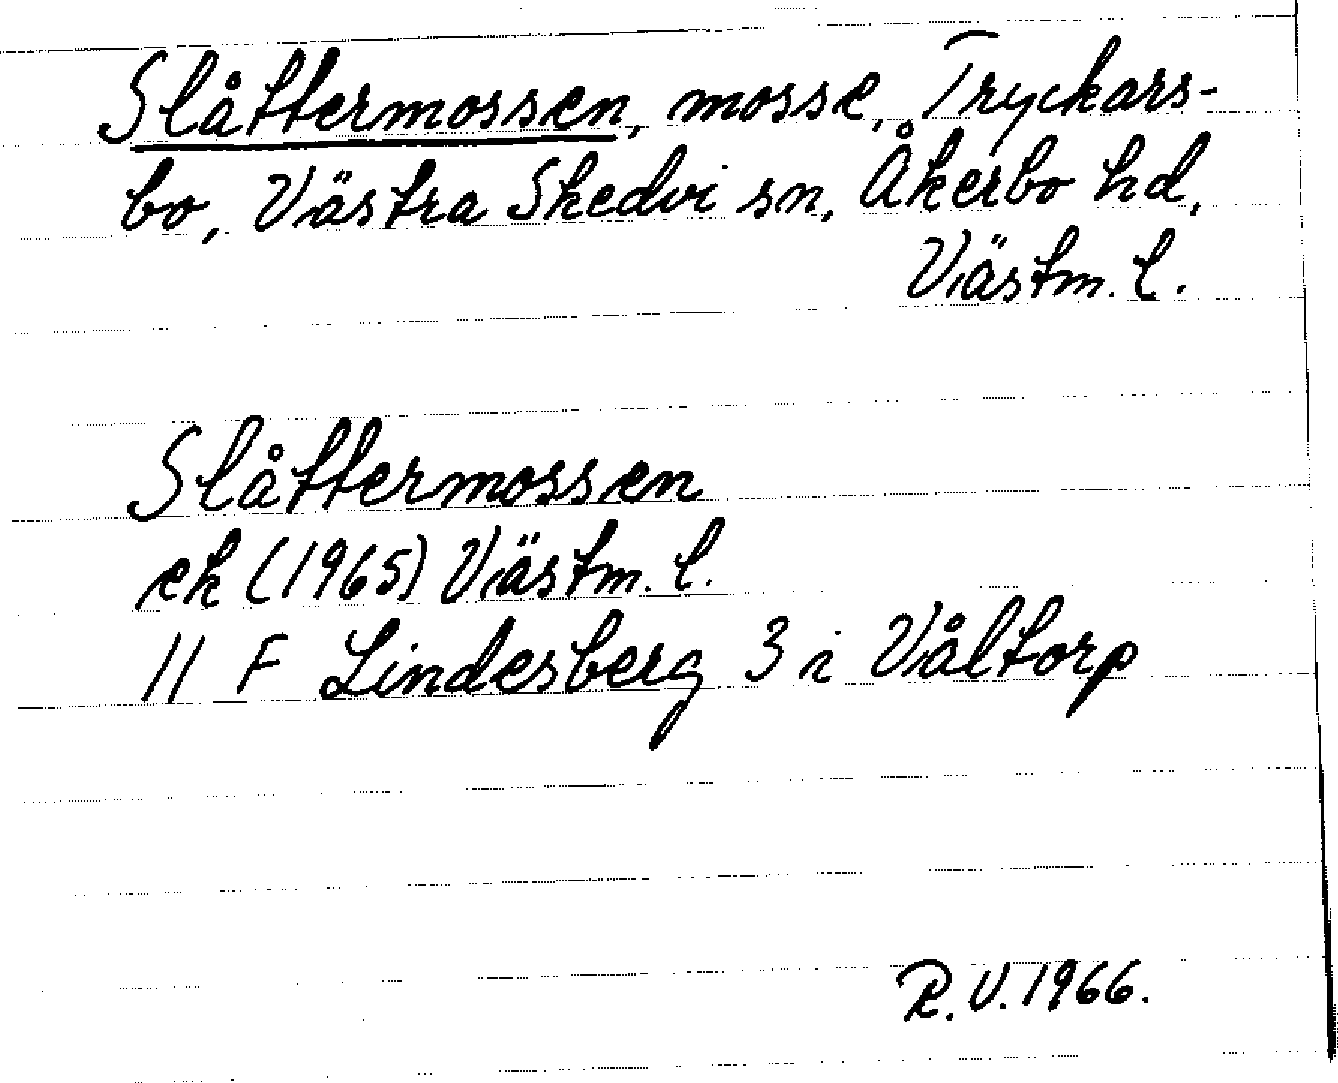 Slåttermossen, mosse, Tryckars-
bo, Västra Skedvi sn, Åkerbo hd,
Västm. l.
Slåttermossen
ek (1965) Västm. l.
11 F Lindesberg 3 i Våltorp
R.V. 1966.